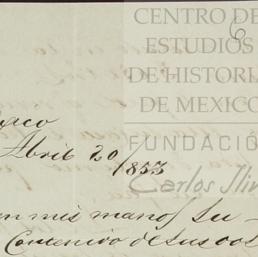 CENTRO DE
ESTUDIOS
DE HISTORIA
DE MEXICO
FUNDACIÓ
Carlos Slim
6
Abril 20/853
en mis manos su
Contenido de sus dos